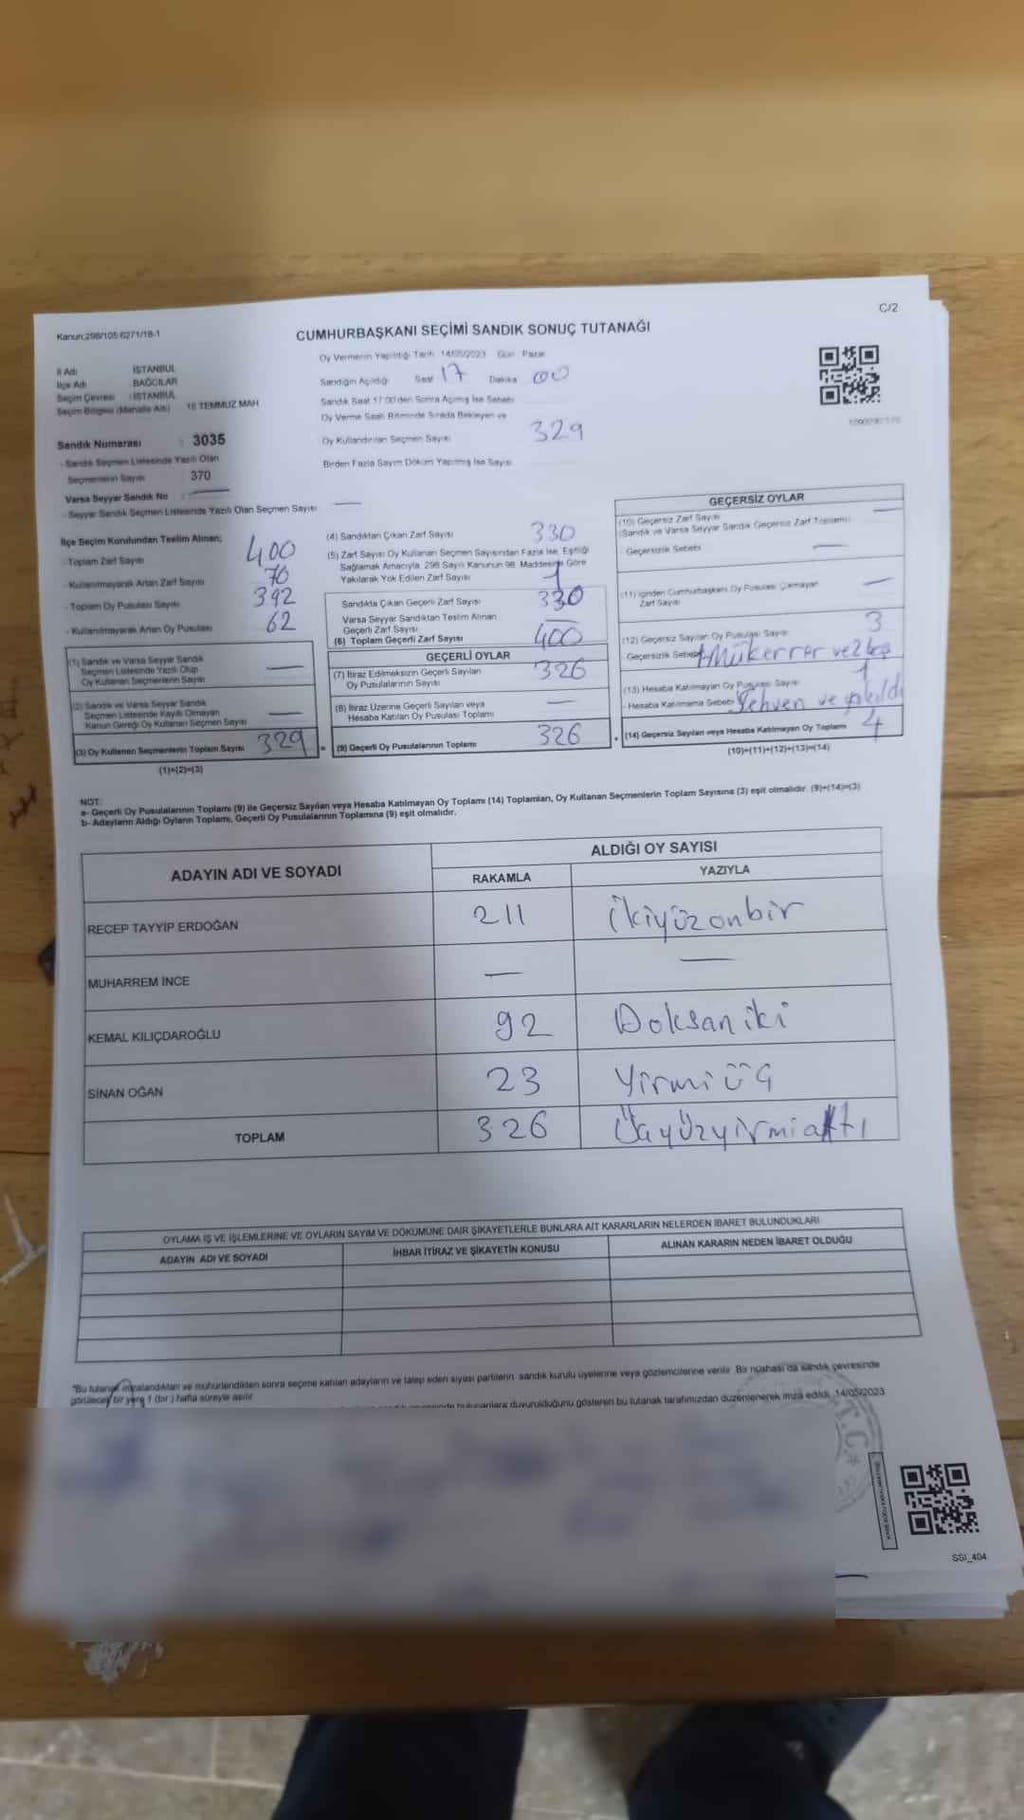 C/2
Kanun:298/105 6271/18-1
CUMHURBAŞKANI SEÇİMİ SANDIK SONUÇ TUTANAĞI
Oy Vermenin Yapıldığı Tarih 14/05/2023 Gün Pazar
İl Adı İSTANBUL
İlçe Adı BAĞCILAR
Seçim Çevresi : İSTANBUL
Seçim Bölgesi (Mahalle Adı) 15 TEMMUZ MAH
Sandığın Açıldığı Saat 17 Dakika 00
Sandık Saat 17.00'den Sonra Açılmış İse Sebebi
Oy Verme Saati Bitiminde Sırada Bekleyen ve
Oy Kullandırılan Seçmen Sayısı 329
Birden Fazla Sayım Döküm Yapılmış İse Sayısı
Sandık Numarası : 3035
- Sandık Seçmen Listesinde Yazılı Olan
Seçmenlerin Sayısı 370
Varsa Seyyar Sandık No : —
- Seyyar Sandık Seçmen Listesinde Yazılı Olan Seçmen Sayısı —
İlçe Seçim Kurulundan Teslim Alınan;
- Toplam Zarf Sayısı 400
- Kullanılmayarak Artan Zarf Sayısı 70
- Toplam Oy Pusulası Sayısı 392
- Kullanılmayarak Artan Oy Pusulası 62
(1) Sandık ve Varsa Seyyar Sandık
Seçmen Listesinde Yazılı Olup
Oy Kullanan Seçmenlerin Sayısı —
(2) Sandık ve Varsa Seyyar Sandık
Seçmen Listesinde Kayıtlı Olmayan
Kanun Gereği Oy Kullanan Seçmenlerin Sayısı —
(3) Oy Kullanan Seçmenlerin Toplam Sayısı 329
(1)+(2)=(3)
(4) Sandıktan Çıkan Zarf Sayısı 330
(5) Zarf Sayısı Oy Kullanan Seçmen Sayısından Fazla İse, Eşitliği
Sağlamak Amacıyla, 298 Sayılı Kanunun 98. Maddesine Göre
Yakılarak Yok Edilen Zarf Sayısı 1
Sandıkta Çıkan Geçerli Zarf Sayısı 330
Varsa Seyyar Sandıktan Teslim Alınan
Geçerli Zarf Sayısı —
(6) Toplam Geçerli Zarf Sayısı 400
GEÇERLİ OYLAR
(7) İtiraz Edilmeksizin Geçerli Sayılan
Oy Pusulalarının Sayısı 326
(8) İtiraz Üzerine Geçerli Sayılan veya
Hesaba Katılan Oy Pusulası Toplamı —
(9) Geçerli Oy Pusulalarının Toplamı 326
GEÇERSİZ OYLAR
(10) Geçersiz Zarf Sayısı
(Sandık ve Varsa Seyyar Sandık Geçersiz Zarf Toplamı) —
Geçersizlik Sebebi —
(11) İçinden Cumhurbaşkanı Oy Pusulası Çıkmayan
Zarf Sayısı —
(12) Geçersiz Sayılan Oy Pusulası Sayısı 3
Geçersizlik Sebebi 1 Mükerrer ve 2 boş
(13) Hesaba Katılmayan Oy Pusulası Sayısı 1
- Hesaba Katılmama Sebebi Sehven ve yakıldı
(14) Geçersiz Sayılan veya Hesaba Katılmayan Oy Toplamı 4
(10)+(11)+(12)+(13)=(14)
NOT:
a- Geçerli Oy Pusulalarının Toplamı (9) ile Geçersiz Sayılan veya Hesaba Katılmayan Oy Toplamı (14) Toplamları, Oy Kullanan Seçmenlerin Toplam Sayısına (3) eşit olmalıdır. (9)+(14)=(3)
b- Adayların Aldığı Oyların Toplamı, Geçerli Oy Pusulalarının Toplamına (9) eşit olmalıdır.
ADAYIN ADI VE SOYADI ALDIĞI OY SAYISI
RAKAMLA YAZIYLA
RECEP TAYYİP ERDOĞAN 211 ikiyüzonbir
MUHARREM İNCE — —
KEMAL KILIÇDAROĞLU 92 Doksaniki
SİNAN OĞAN 23 Yirmiüç
TOPLAM 326 Üçyüzyirmialtı
OYLAMA İŞ VE İŞLEMLERİNE VE OYLARIN SAYIM VE DÖKÜMÜNE DAİR ŞİKAYETLERLE BUNLARA AİT KARARLARIN NELERDEN İBARET BULUNDUKLARI
ADAYIN ADI VE SOYADI İHBAR İTİRAZ VE ŞİKAYETİN KONUSU ALINAN KARARIN NEDEN İBARET OLDUĞU
"Bu tutanak imzalandıktan ve mühürlendikten sonra seçime katılan adayların ve talep eden siyasi partilerin sandık kurulu üyelerine veya gözlemcilerine verilir. Bir nüshası da sandık çevresinde
görülecek bir yere 1 (bir) hafta süreyle asılır
bulunanlara duyurulduğunu gösteren bu tutanak tarafımızdan düzenlenerek imza edildi. 14/05/2023
T.C.
SSI_404